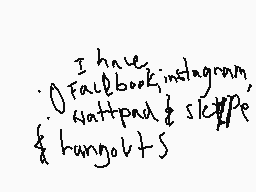 I have
Facebook, instagram,
wattpad & skype
& hangouts